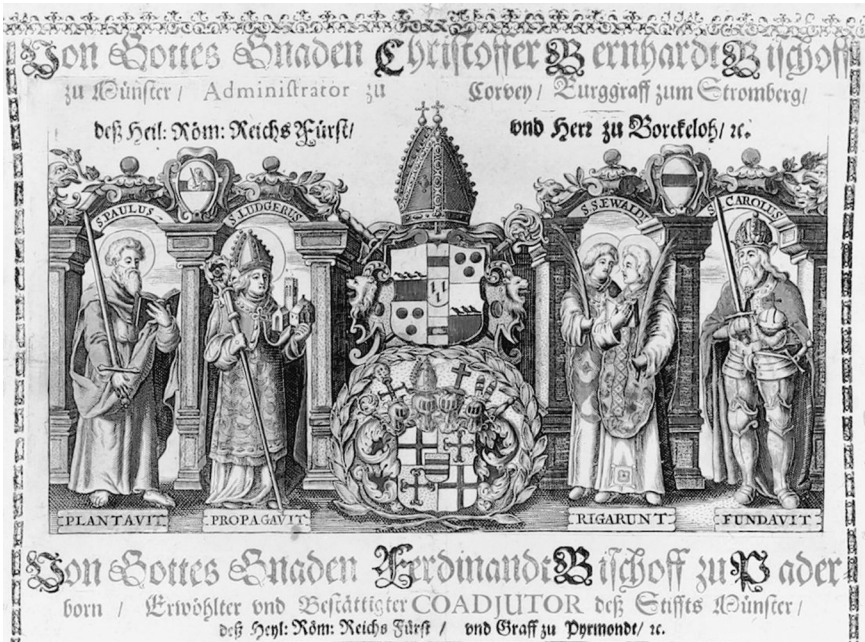 Von Gottes Gnaden Christoffer Bernhardt Bischoff
zu Münster / Administrator zu Corvey / Burggraff zum Stromberg /
deß Heil: Röm: Reichs Fürst / vnd Herr zu Borckeloh / ꝛc.
S. PAULUS S. LUDGERUS S. S. EWALDI S. CAROLUS
PLANTAVIT PROPAGAVIT RIGARUNT FUNDAVIT
Von Gottes Gnaden Ferdinandt Bischoff zu Pader
born / Erwöhlter vnd Bestättigter COADJUTOR deß Stiffts Münster /
deß Heyl: Röm: Reichs Fürst / vnd Graff zu Pyrmondt / ꝛc.